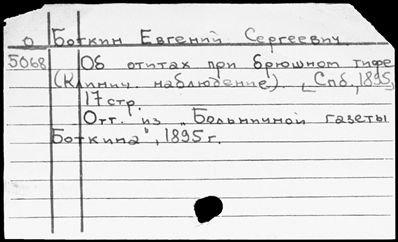 О Боткин Евгений Сергеевич
5068 Об отитах при брюшном тифе
(Клинич. наблюдение). Спб., 1895,
17 стр.
Отт. из „Больничной газеты
Боткина", 1895 г.